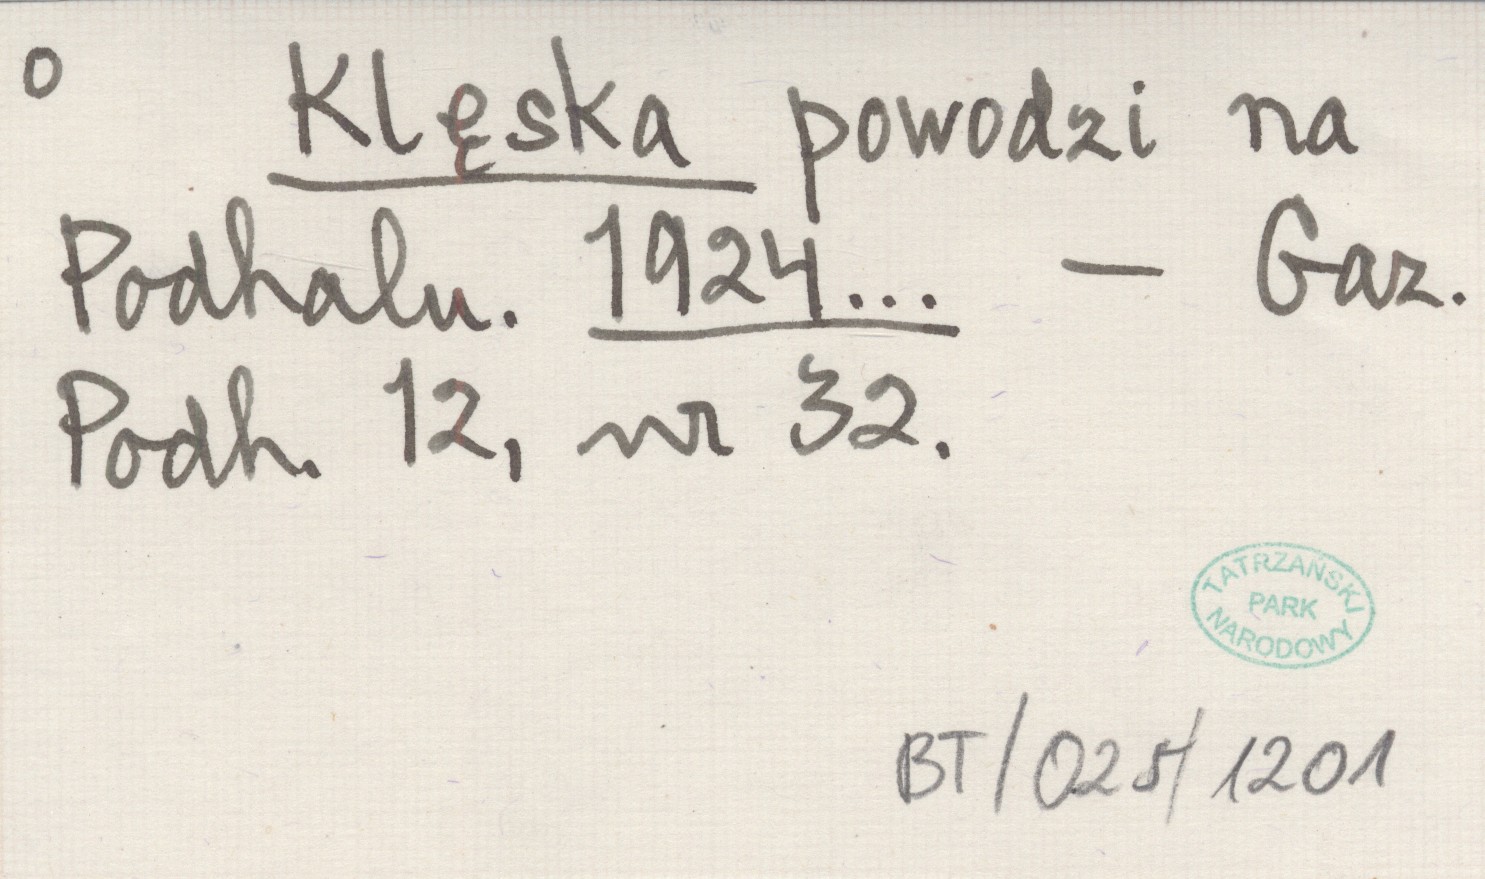 o Klęska powodzi na
Podhalu. 1924... — Gaz.
Podh. 12, nr 32.
TATRZAŃSKI
PARK
NARODOWY
BT/025/1201